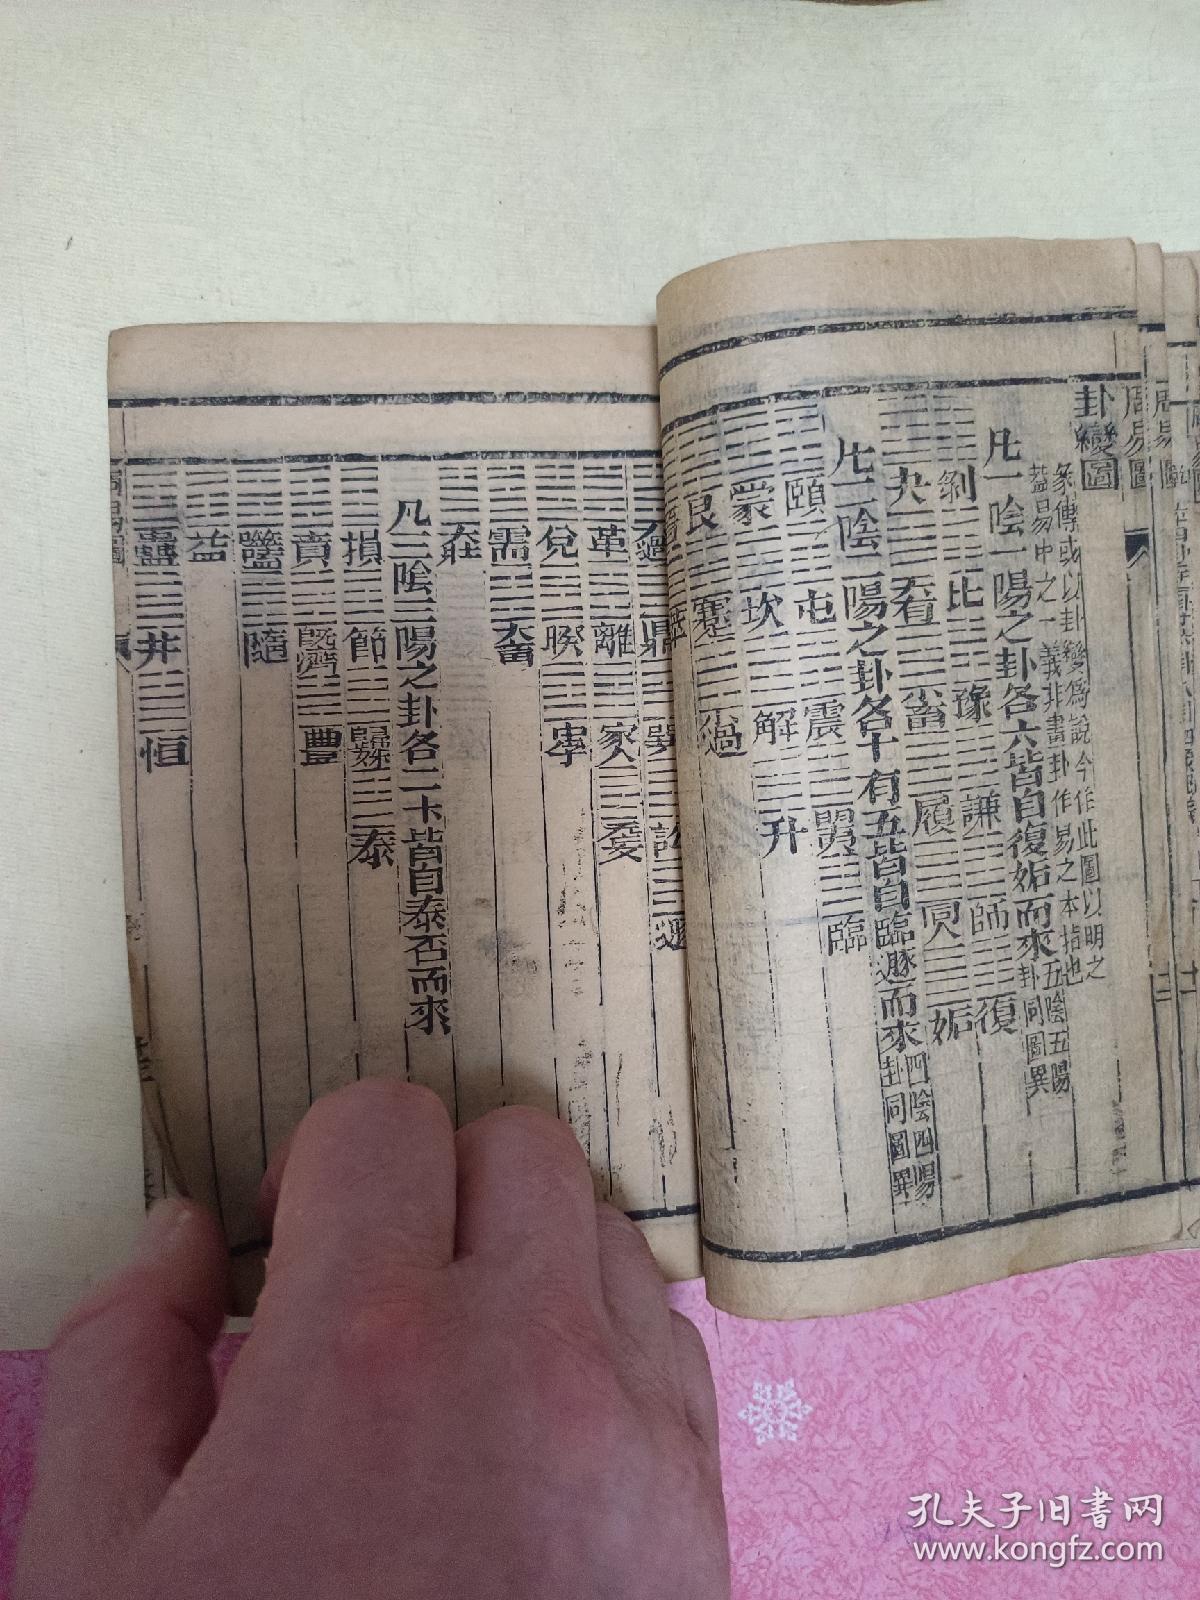 周易圖
卦變圖
彖傳或以卦變爲說今作此圖以明之
蓋易中之一義非畫卦作易之本指也
凡一陰一陽之卦各六皆自復姤而來五陰五陽卦同圖異
剝 比 豫 謙 師 復
夬 有 畜 履 同 姤
凡二陰二陽之卦各十有五皆自臨遯而來四陰四陽卦同圖異
頤 屯 震 明夷 臨
蒙 坎 解 升
艮 蹇 小過
晉 萃
大過 鼎 巽 訟 遯
革 離 家人 无妄
兌 睽 中孚
需 大畜
大壯
凡三陰三陽之卦各二十皆自泰否而來
損 節 歸妹 泰
賁 既濟 豐
噬嗑 隨
益
蠱 井 恒
孔夫子旧书网
www.kongfz.com